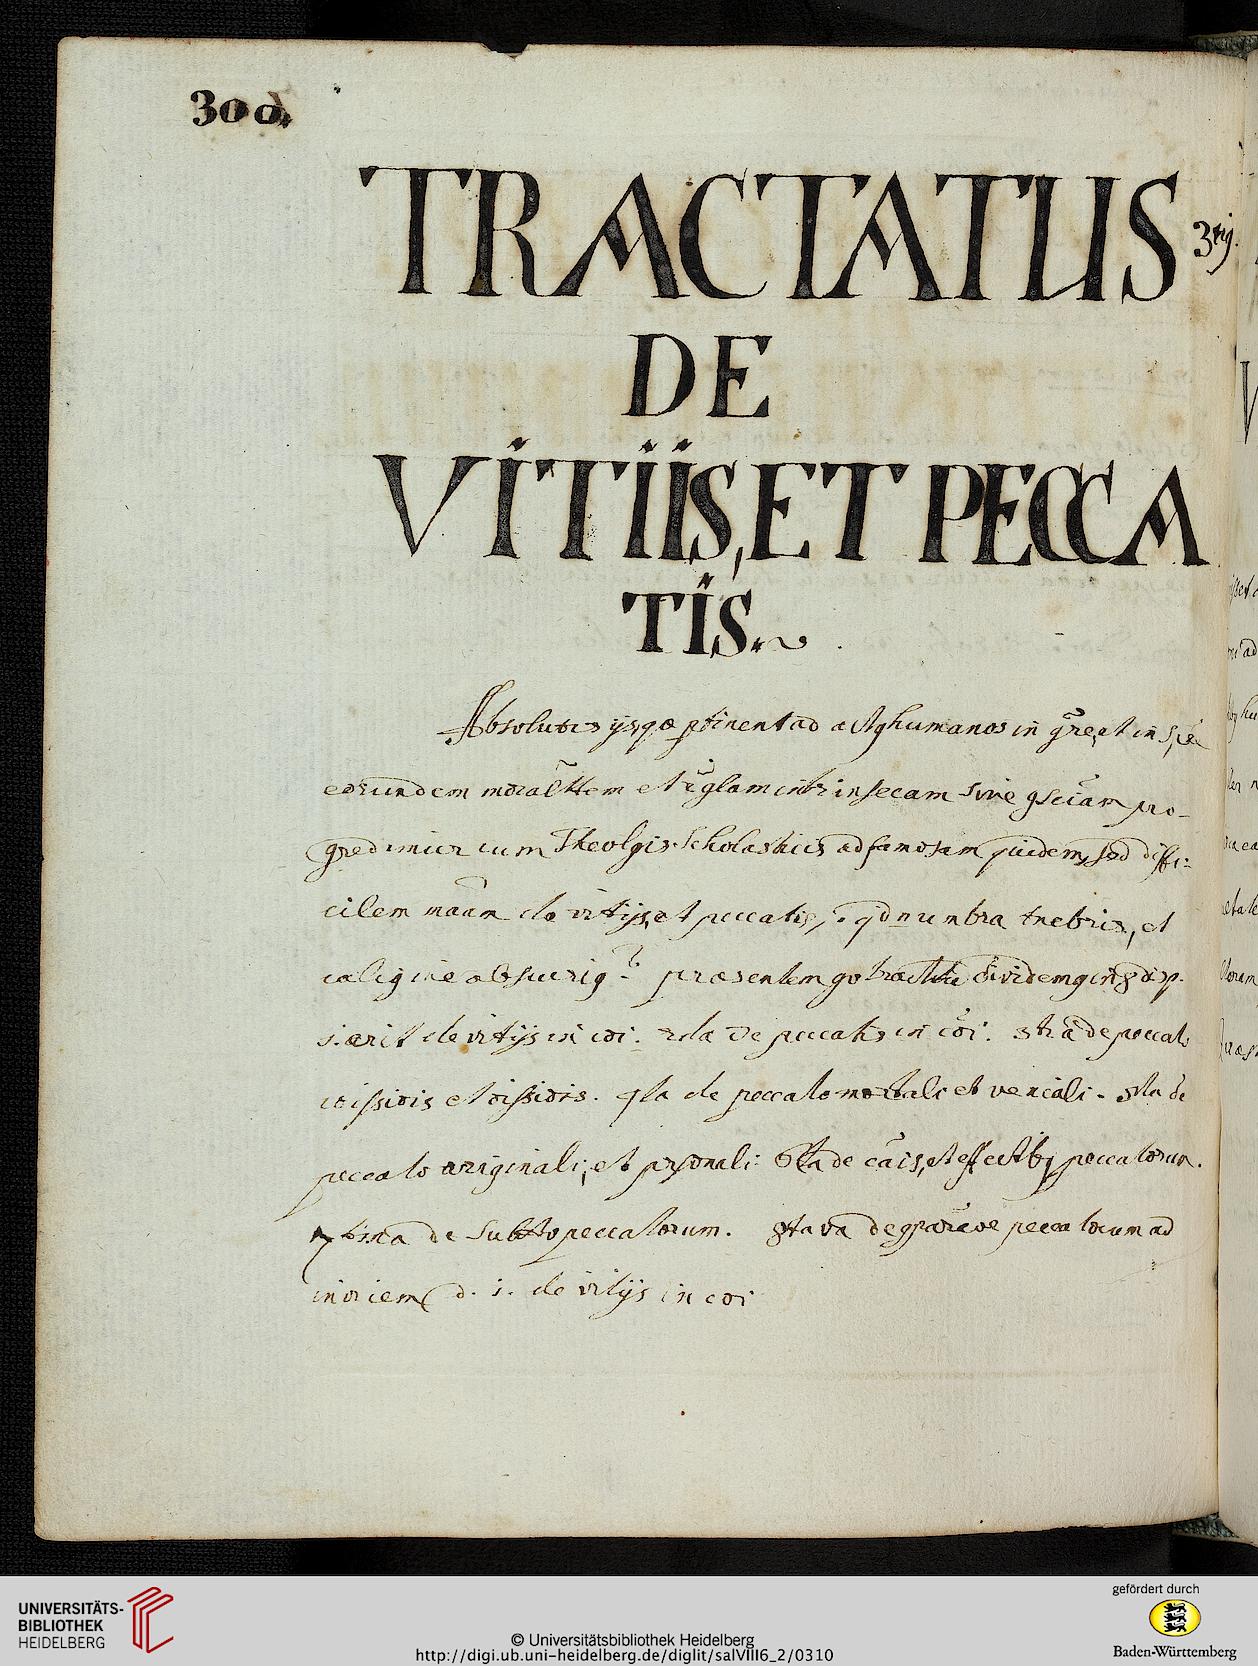 300.
TRACTATUS 3tig.
DE
VITIIS, ET PECCA
TIS.
Absolutis ijs, quæ ptinent ad actq humanos in gñre, et in spe
eorundem moralttem et rglam intrinsecam sive gsciam pro-
gredimur cum Theolgis Scholasticis ad famosam quidem, sed diffi-
cilem maam de vitijs, et peccatis, qd umbra tnebris, et
caligine præsentem go dividemq in 8 disp.
1. erit de vitijs in coi. 2da de peccatis in coi. 3tia de peccat
coissiois et oissiois. 4ta de peccato mortali et veniali. 5ta de
peccato originali, et prsonali. 6ta de cais, et effectibq peccatorum.
7tima de Subtto peccatorum. 8tava de gparaoe peccatorum ad
invicem d. 1. de vitijs in coi
UNIVERSITÄTS-
BIBLIOTHEK
HEIDELBERG
© Universitätsbibliothek Heidelberg
http://digi.ub.uni-heidelberg.de/diglit/salVIII6_2/0310
gefördert durch
Baden-Württemberg